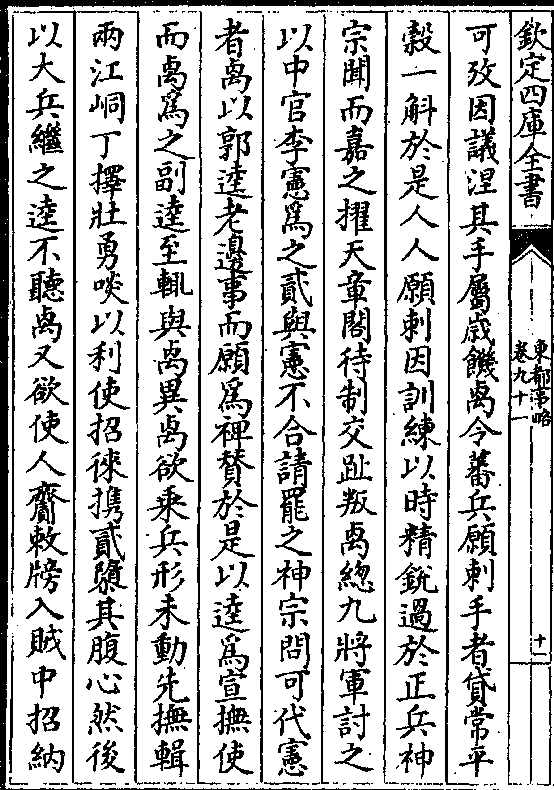 欽定四庫全書
東都事略
卷九十一
十
可攷因議涅其手屬歲饑卨令蕃兵願刺手者貸常平
穀一斛於是人人願刺因訓練以時精銳過於正兵神
宗聞而嘉之擢天章閣待制交趾叛卨總九將軍討之
以中官李憲爲之貳與憲不合請罷之神宗問可代憲
者卨以郭逵老邊事而願爲裨贊於是以逵爲宣撫使
而卨爲之副逵至輒與卨異卨欲乘兵形未動先撫輯
兩江峒丁擇壯勇啖以利使招徠携貳隳其腹心然後
以大兵繼之逵不聽卨又欲使人齎敕牓入賊中招納